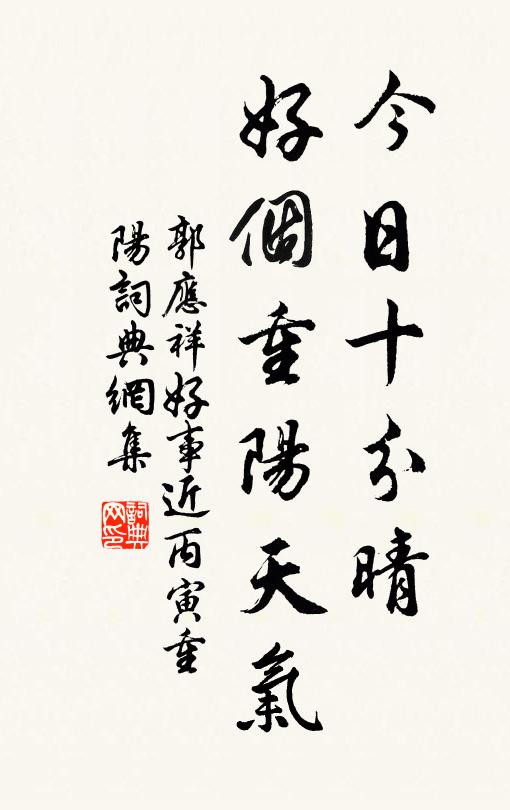 今日十分晴
好個重陽天氣
郭應祥好事近丙寅重
陽詞典網集
詞典网印